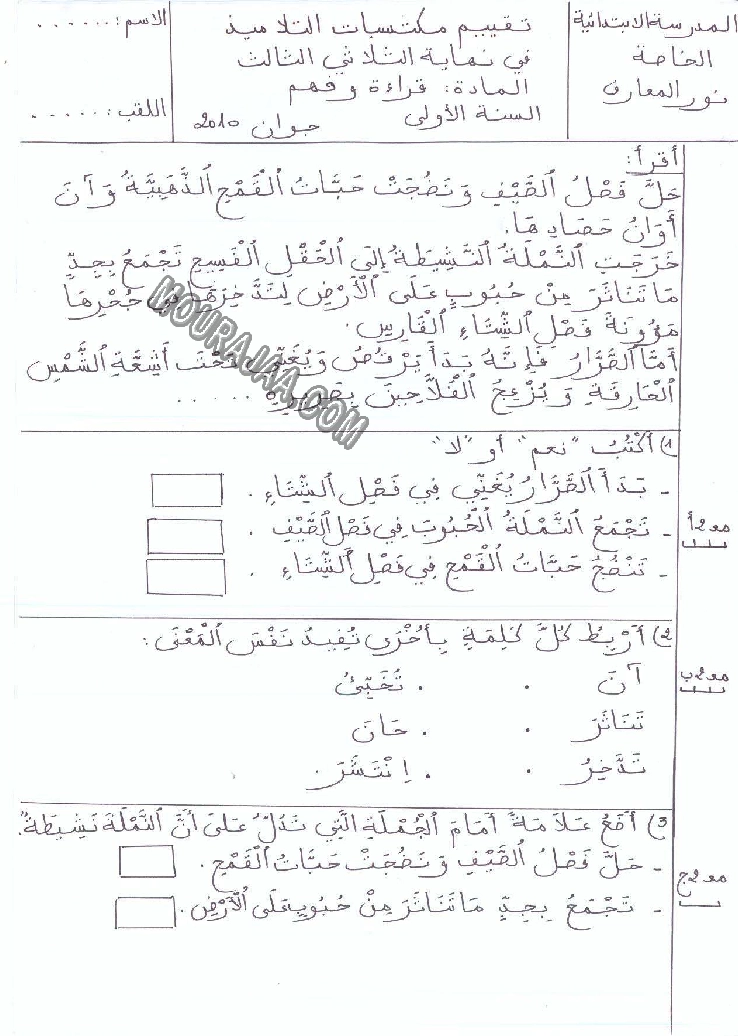 المدرسة الابتدائية
الخاصة
نور المعارف
تقييم مكتسبات التلاميذ
في نهاية الثلاثي الثالث
المادة: قراءة وفهم
السنة الأولى
جوان 2010
الاسم: ......
اللقب: ......
أقرأ:
حَلَّ فَصْلُ ٱلصَّيْفِ وَنَضُجَتْ حَبَّاتُ ٱلْقَمْحِ ٱلذَّهَبِيَّةُ وَآنَ
أَوَانُ حَصَادِهَا.
خَرَجَتِ ٱلنَّمْلَةُ ٱلنَّشِيطَةُ إِلَى ٱلْحَقْلِ ٱلْفَسِيحِ تَجْمَعُ بِجِدٍّ
مَا تَنَاثَرَ مِنْ حُبُوبٍ عَلَى ٱلْأَرْضِ لِتَدَّخِرَهَا فِي جُحْرِهَا
مَؤُونَةَ فَصْلِ ٱلشِّتَاءِ ٱلْقَارِسِ.
أَمَّا ٱلصَّرَّارُ فَإِنَّهُ بَدَأَ يَرْقُصُ وَيُغَنِّي تَحْتَ أَشِعَّةِ ٱلشَّمْسِ
ٱلْحَارِقَةِ وَيُزْعِجُ ٱلْفَلَّاحِينَ بِصَرِيرِهِ .....
MOURAJAA.COM
1) أَكْتُبُ "نعم" أو "لا"
- بَدَأَ ٱلصَّرَّارُ يُغَنِّي فِي فَصْلِ ٱلشِّتَاءِ.
- تَجْمَعُ ٱلنَّمْلَةُ ٱلْحُبُوبَ فِي فَصْلِ ٱلصَّيْفِ.
- تَنْضُجُ حَبَّاتُ ٱلْقَمْحِ فِي فَصْلِ ٱلشِّتَاءِ.
مع2أ
2) أَرْبِطُ كُلَّ كَلِمَةٍ بِأُخْرَى تُفِيدُ نَفْسَ ٱلْمَعْنَى:
آنَ . . تُخَبِّئُ
تَنَاثَرَ . . حَانَ
تَدَّخِرُ . . اِنْتَشَرَ.
مع2ب
3) أَضَعُ عَلَامَةً أَمَامَ ٱلْجُمْلَةِ ٱلَّتِي تَدُلُّ عَلَى أَنَّ ٱلنَّمْلَةَ نَشِيطَةٌ.
- حَلَّ فَصْلُ ٱلصَّيْفِ وَنَضُجَتْ حَبَّاتُ ٱلْقَمْحِ.
- تَجْمَعُ بِجِدٍّ مَا تَنَاثَرَ مِنْ حُبُوبٍ عَلَى ٱلْأَرْضِ.
مع2ج